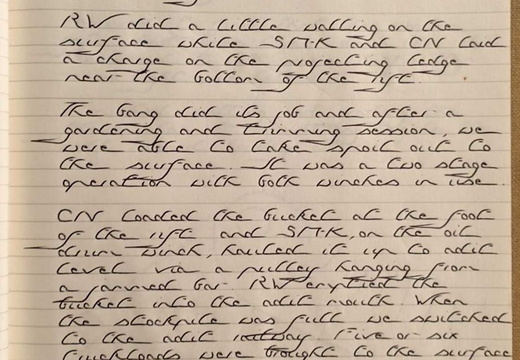 RW did a little walling on the
surface while SMK and CN laid
a charge on the projecting ledge
near the bottom of the rift.
The bang did its job and after a
gardening and trimming session, we
were able to take spoil out to
the surface. It was a two stage
operation with both winches in use.
CN loaded the bucket at the foot
of the rift and SMK, on the oil
drum winch, hauled it up to adit
level via a pulley hanging from
a jammed bar. RW emptied the
bucket into the adit mouth. When
the stockpile was full we switched
to the adit railway. Five or six
truckloads were brought to the surface